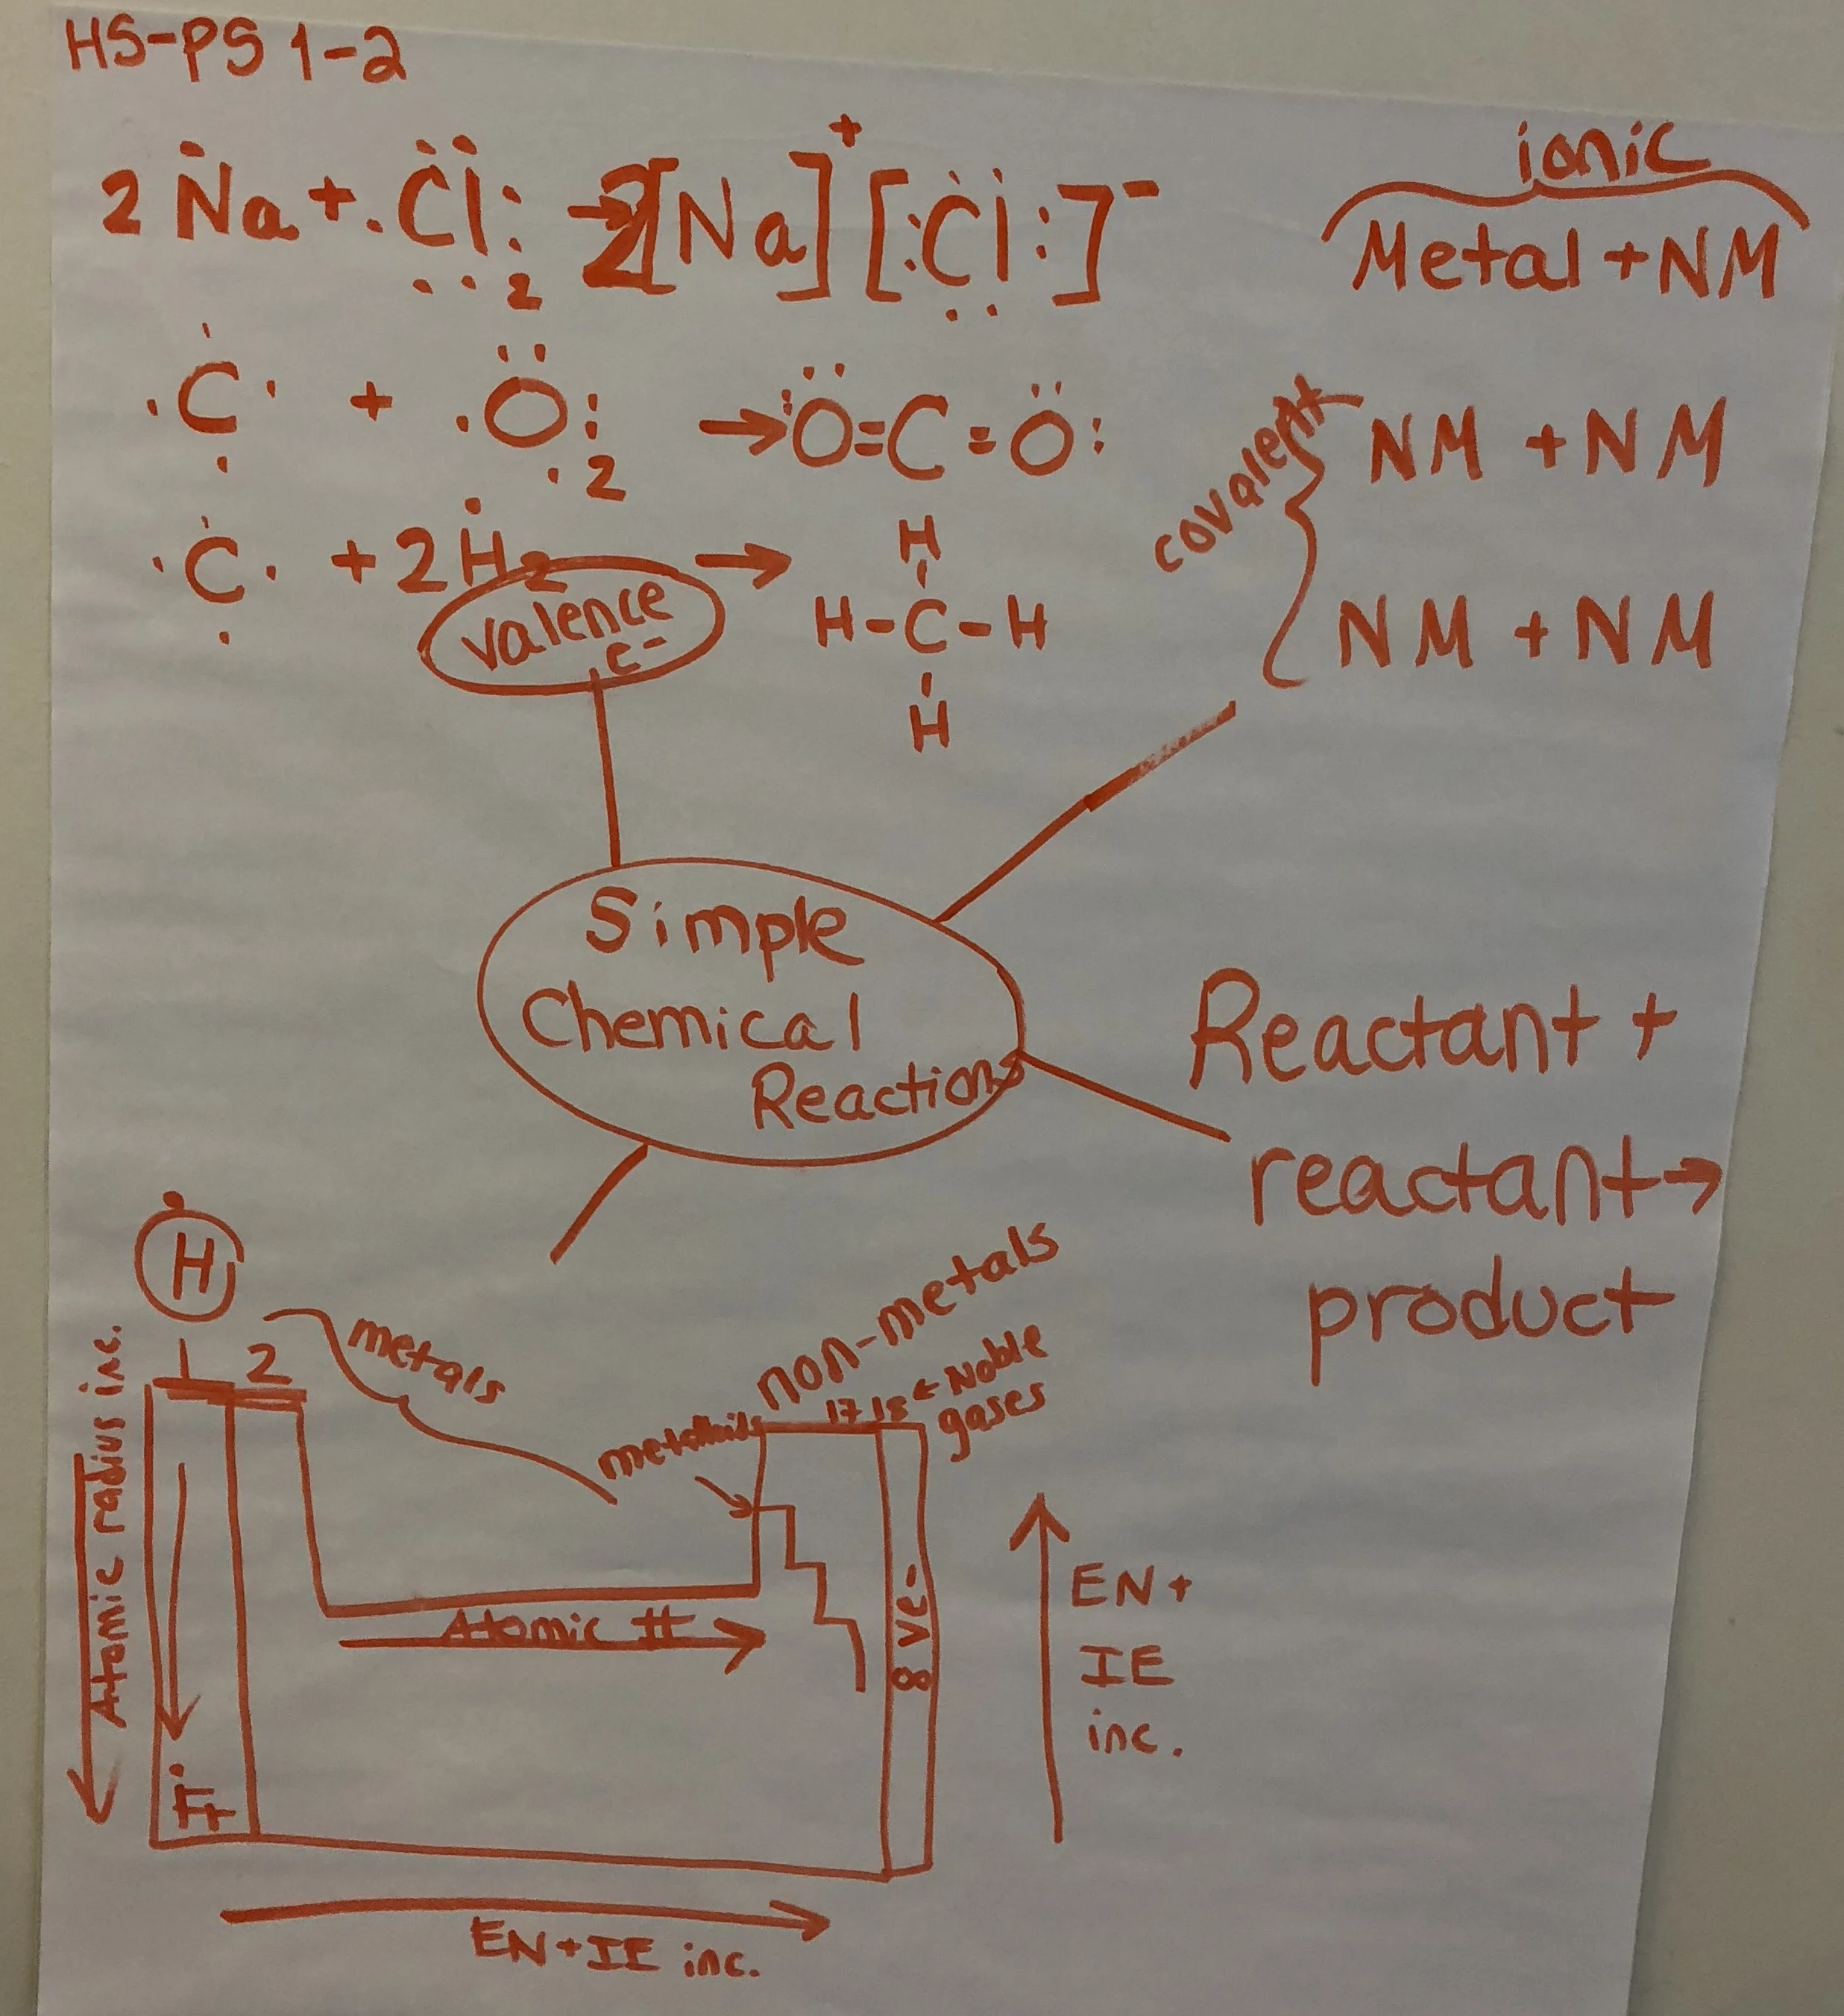 HS-PS 1-2
2 Na + Cl2 → 2[Na]+ [Cl]-
ionic
Metal + NM
C + O2 → O=C=O
covalent
NM + NM
C + 2H2 →
H
H-C-H
H
NM + NM
valence
e-
Simple
Chemical
Reactions
Reactant +
reactant →
product
H
1 2
metals
non-metals
metalloids
17 18 ← Noble
gases
Atomic radius inc.
Atomic #
8 ve-
Fr
EN +
IE
inc.
EN + IE inc.